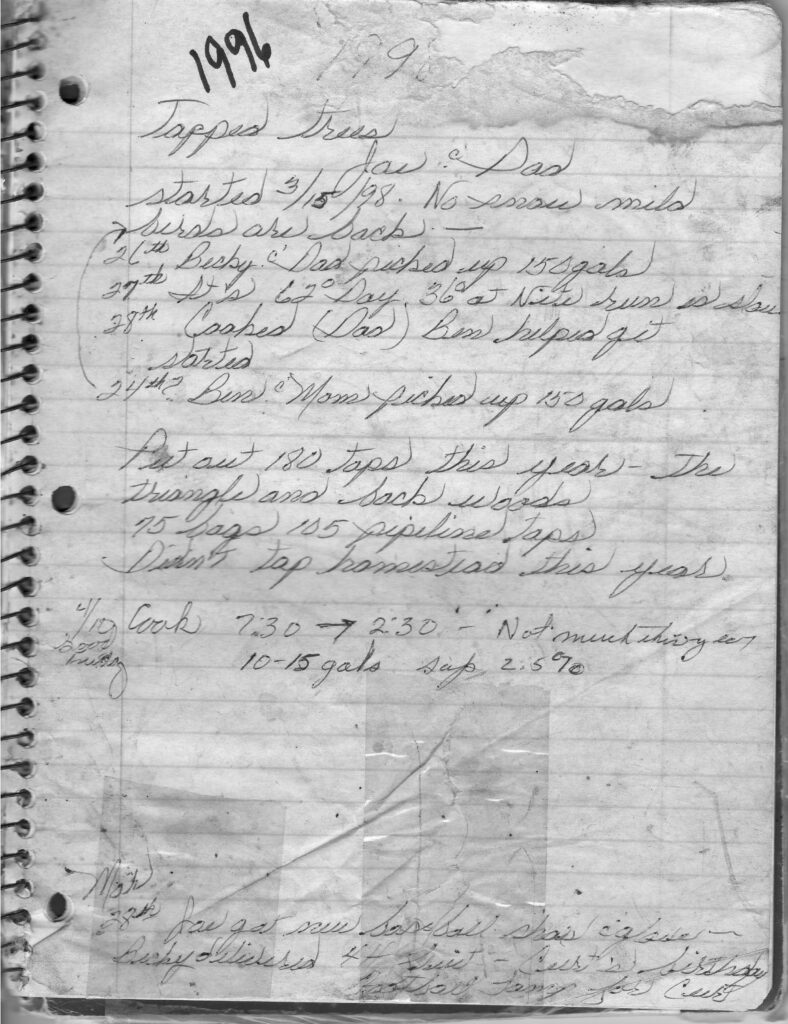 1996
199
Tapped trees
Joe & Dad
started 3/15/98. No snow mild
birds are back —
26th Becky & Dad picked up 150 gals
27th It's 62° Day 36° at Nite run is slow
28th Cooked (Dad) Ben helped get
started
24th? Ben & Mom picked up 150 gals
Put out 180 taps this year - The
triangle and back woods
75 bags 105 pipeline taps
Didn't tap homestead this year.
4/10 Cook 7:30 → 2:30 - Not much this year
Good Friday
10-15 gals sap 2.5%
Mar
28th Joe got new baseball shoes & glove —
Becky 4-H - Curt's birthday
for Curt